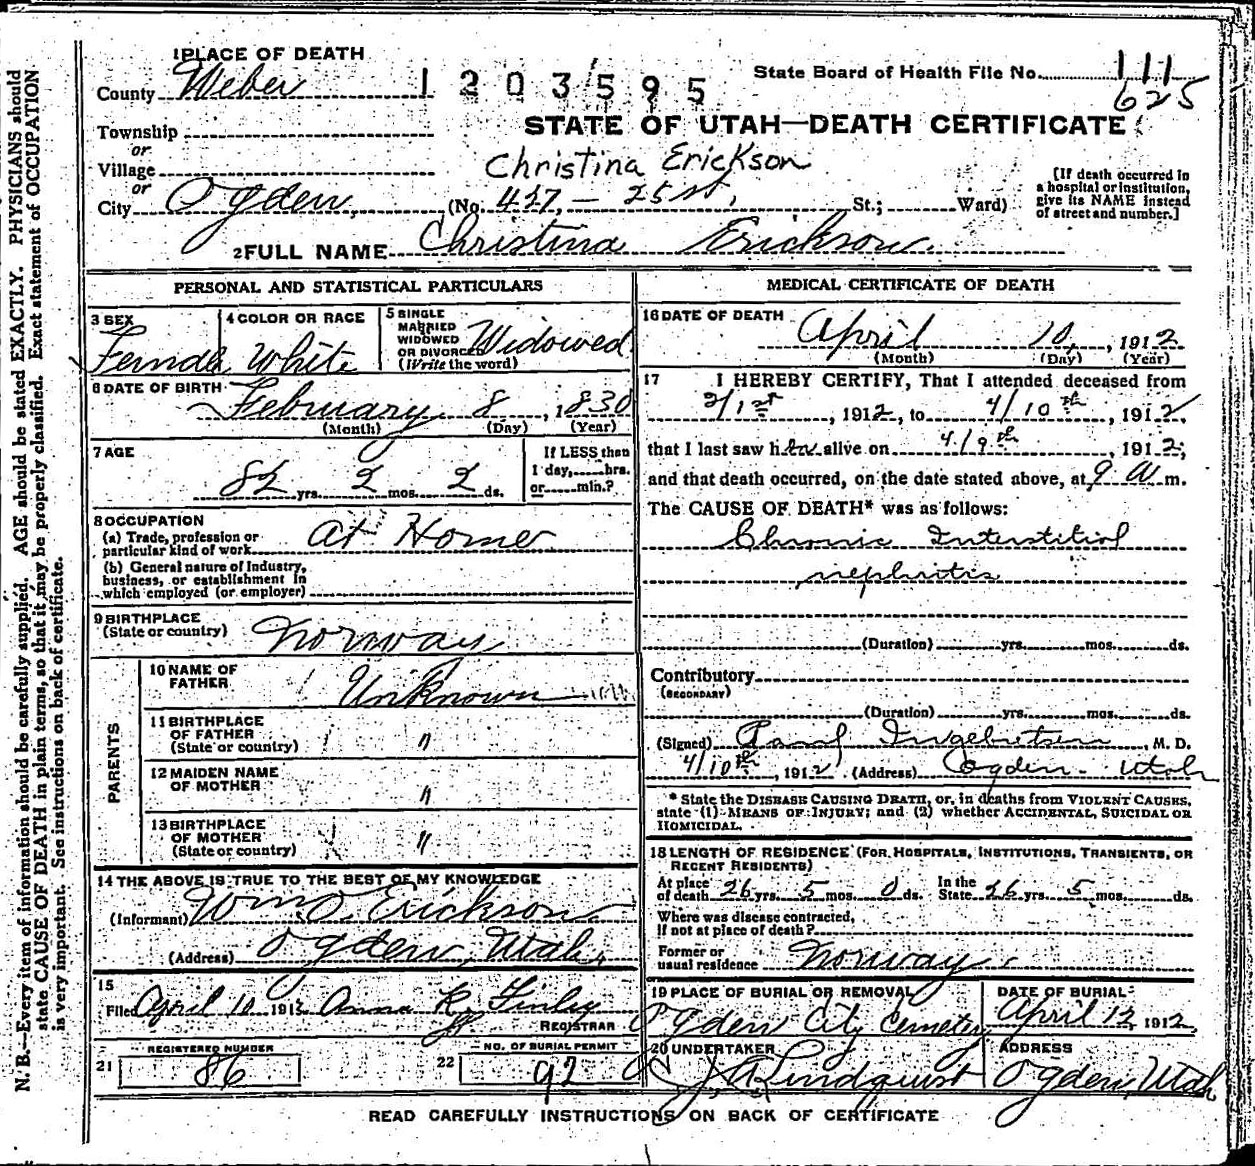 1 PLACE OF DEATH
County Weber
1203595
State Board of Health File No. 111
625
STATE OF UTAH—DEATH CERTIFICATE
Township
or
Village
or
City Ogden,
Christina Erickson
(No. 427, — 25st, St.; Ward)
[If death occurred in
a hospital or institution,
give its NAME instead
of street and number.]
2 FULL NAME Christina Erickson.
PERSONAL AND STATISTICAL PARTICULARS
3 SEX Female
4 COLOR OR RACE White
5 SINGLE
MARRIED
WIDOWED
OR DIVORCED
(Write the word)
Widowed
6 DATE OF BIRTH
February 8, 1830
(Month) (Day) (Year)
7 AGE
82 yrs. 2 mos. 2 ds.
If LESS than
1 day,......hrs.
or......min.?
8 OCCUPATION
(a) Trade, profession or
particular kind of work
At Home
(b) General nature of Industry,
business, or establishment in
which employed (or employer)
9 BIRTHPLACE
(State or country)
Norway
PARENTS
10 NAME OF
FATHER
Unknown
11 BIRTHPLACE
OF FATHER
(State or country)
"
12 MAIDEN NAME
OF MOTHER
"
13 BIRTHPLACE
OF MOTHER
(State or country)
"
14 THE ABOVE IS TRUE TO THE BEST OF MY KNOWLEDGE
(Informant) Wm O. Erickson
(Address) Ogden, Utah.
15
Filed April 10 1912 Anna R. Finley
REGISTRAR
REGISTERED NUMBER
21 86
NO. OF BURIAL PERMIT
22 92
MEDICAL CERTIFICATE OF DEATH
16 DATE OF DEATH
April 10, 1912
(Month) (Day) (Year)
17 I HEREBY CERTIFY, That I attended deceased from
2/1st, 1912, to 4/10th, 1912
that I last saw her alive on 4/9th, 1912;
and that death occurred, on the date stated above, at 9 a m.
The CAUSE OF DEATH* was as follows:
Chronic Interstitial
nephritis
(Duration) yrs. mos. ds.
Contributory
(SECONDARY)
(Duration) yrs. mos. ds.
(Signed) Paul Ingebretsen, M. D.
4/10th, 1912 (Address) Ogden- Utah
* State the DISEASE CAUSING DEATH, or, in deaths from VIOLENT CAUSES,
state (1) MEANS OF INJURY; and (2) whether ACCIDENTAL, SUICIDAL OR
HOMICIDAL.
18 LENGTH OF RESIDENCE (FOR HOSPITALS, INSTITUTIONS, TRANSIENTS, OR
RECENT RESIDENTS)
At place
of death 26 yrs. 5 mos. 0 ds. In the
State 26 yrs. 5 mos. ds.
Where was disease contracted,
If not at place of death?
Former or
usual residence Norway
19 PLACE OF BURIAL OR REMOVAL
Ogden City Cemetery
DATE OF BURIAL
April 12, 1912
20 UNDERTAKER
J. A. Lindquist
ADDRESS
Ogden, Utah
READ CAREFULLY INSTRUCTIONS ON BACK OF CERTIFICATE
N. B.—Every item of information should be carefully supplied. AGE should be stated EXACTLY. PHYSICIANS should
state CAUSE OF DEATH in plain terms, so that it may be properly classified. Exact statement of OCCUPATION
is very important. See instructions on back of certificate.